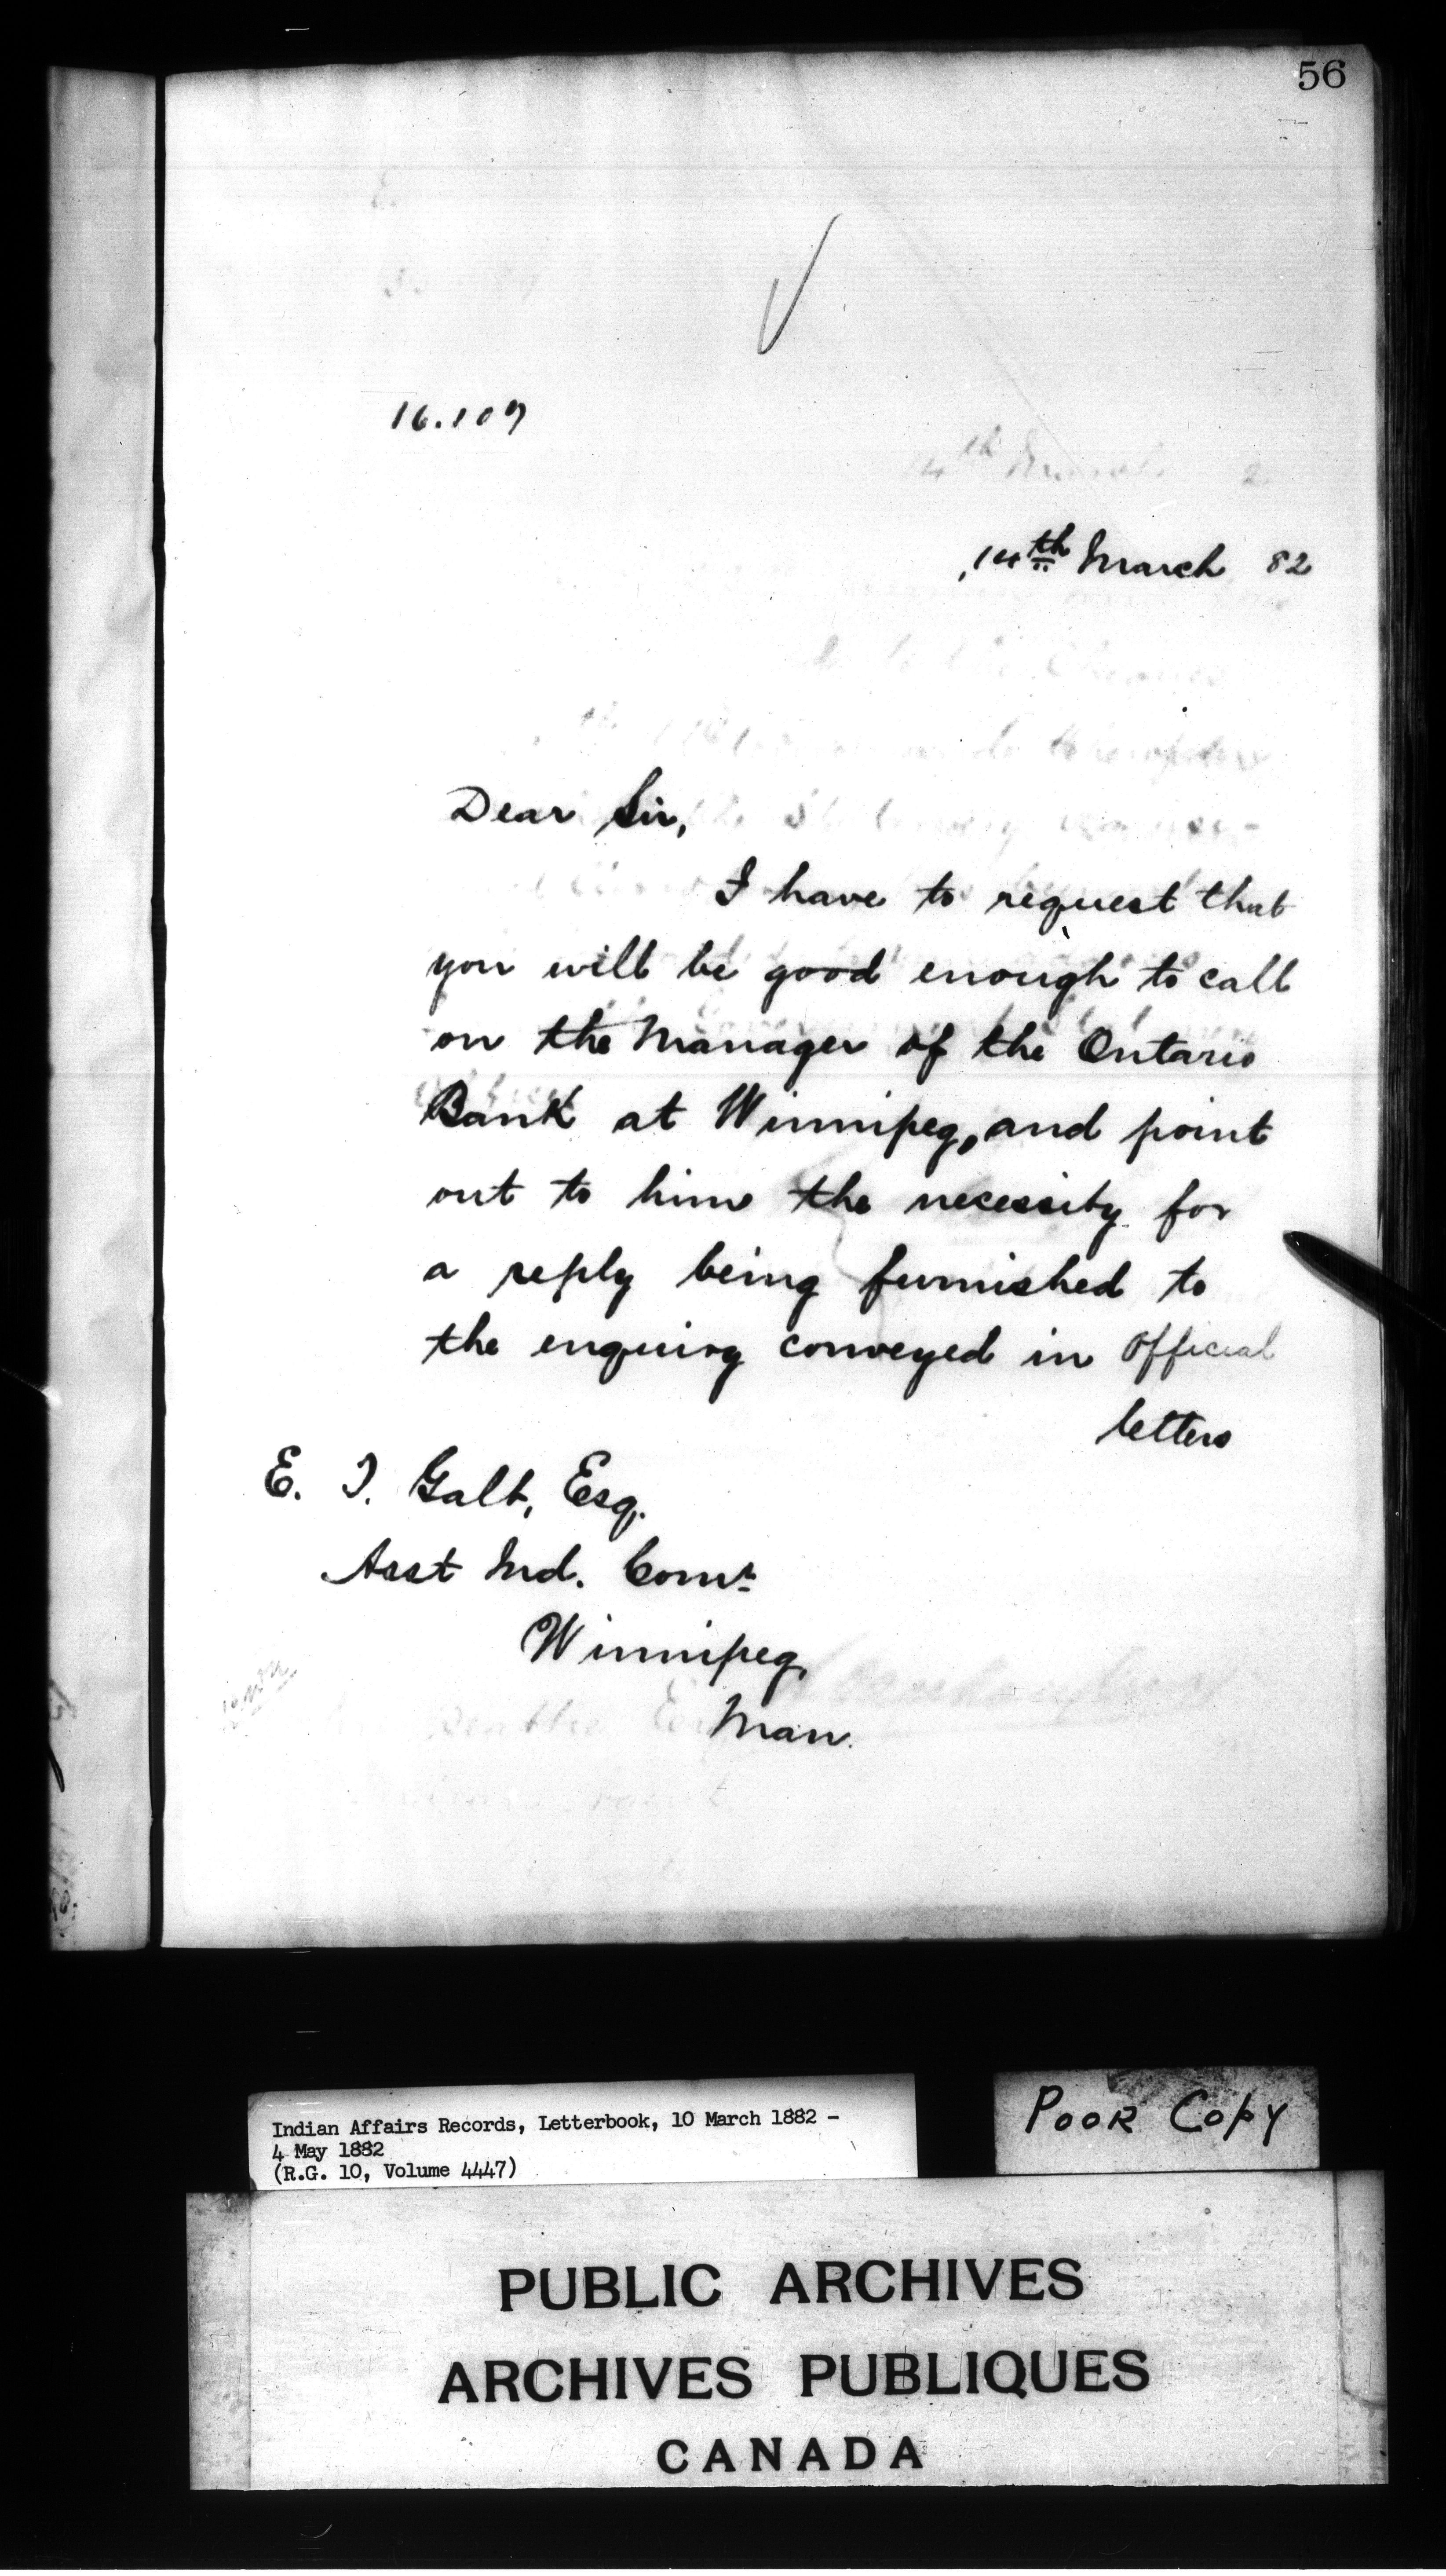 56
16.107
14th March 82
Dear Sir,
I have to request that
you will be good enough to call
on the Manager of the Ontario
Bank at Winnipeg, and point
out to him the necessity for
a reply being furnished to
the enquiry conveyed in Official
letters
E. T. Galt, Esq.
Asst Ind. Comr
Winnipeg,
Man.
Indian Affairs Records, Letterbook, 10 March 1882 -
4 May 1882
(R.G. 10, Volume 4447)
POOR COPY
PUBLIC ARCHIVES
ARCHIVES PUBLIQUES
CANADA